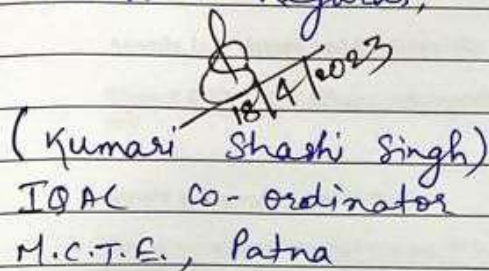 Regards,
18/4/2023
(Kumari Shashi Singh)
IQAC Co-ordinator
M.C.T.E., Patna